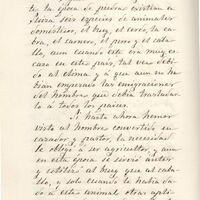 te la época de piedra existian en
Suiza seis especies de animales
domésticos, el buey, el cerdo, la ca-
bra, el carnero, el perro y el caba-
llo, aun cuando este era muy es-
caso en este pais, tal vez debi-
do al clima y á que aun no ha-
bian empezado las emigraciones
del hombre que debia trasladar-
lo á todos los paises.
Si hasta ahora hemos
visto al hombre convertirse en
cazador, y pastor, la necesidad
le obligó á ser agricultor, y aun
en esta época se sirvió antes
y utilizó al buey que al caba-
llo, y solo cuando le habia da-
do á este animal otras apli-